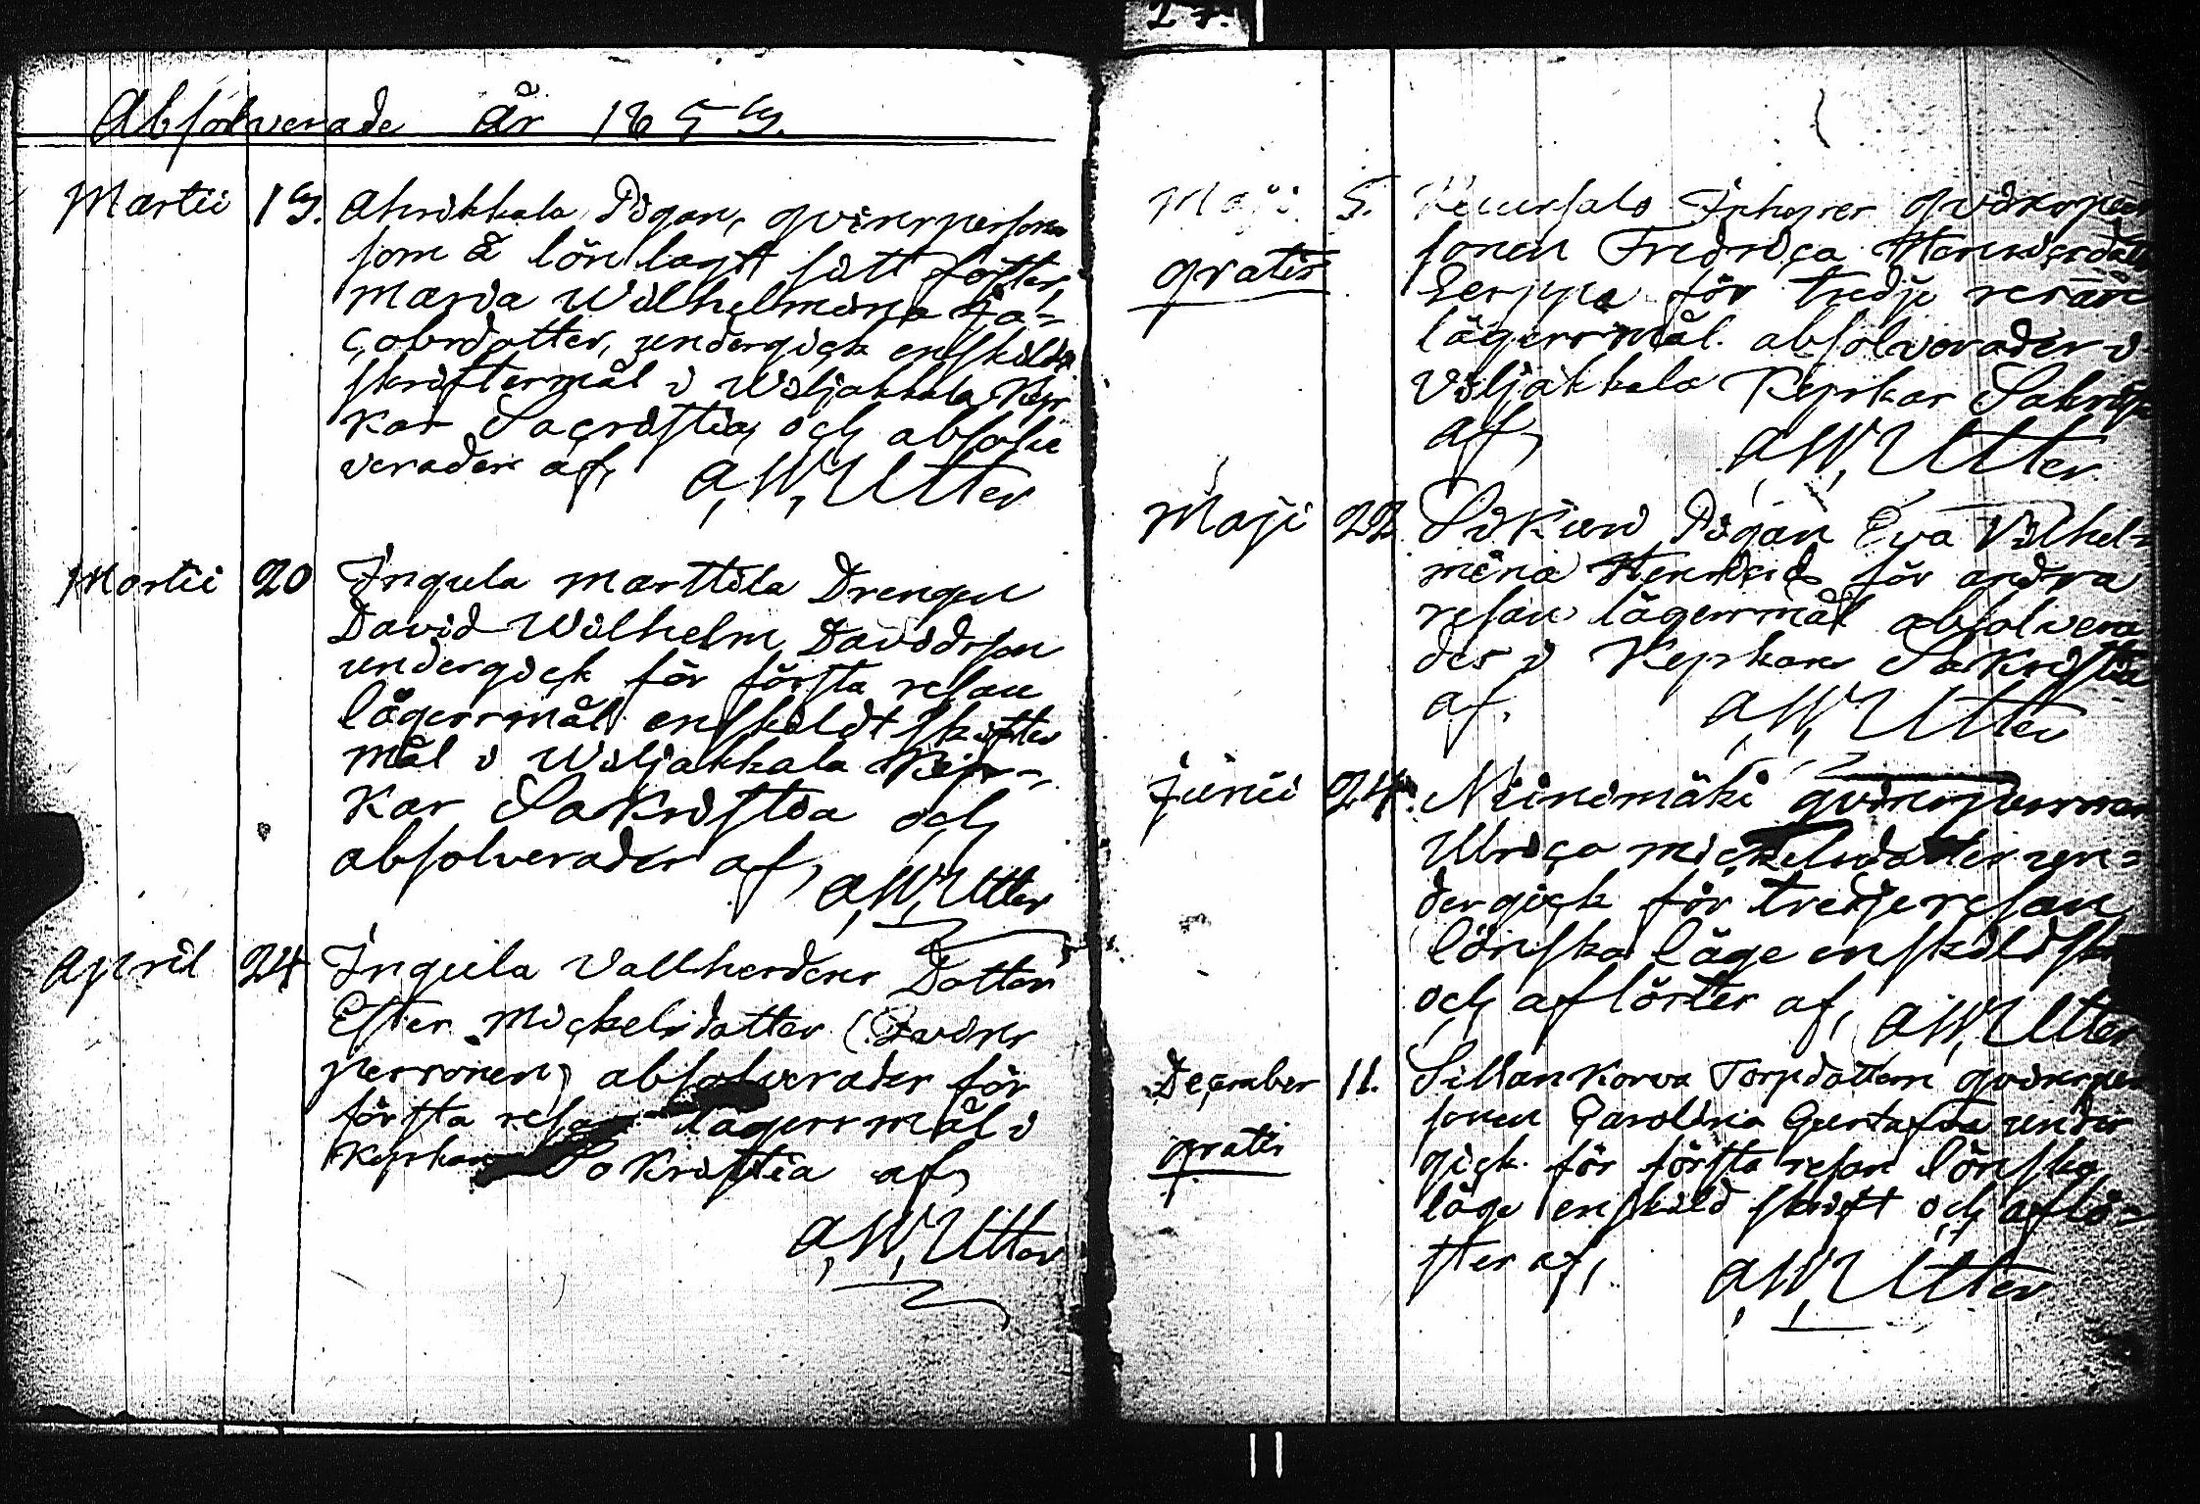 27.
Absolverade År 1859.
Martii 19. Ahrikkala Pigan, qvinspersonen
som å lönlagt sitt foster,
Maria Wilhelmina Ja=
cobsdotter, undergick enskilde
skriftermål i Wiljakkala Kyr
kas Sacristia och absolve
verades af, A, W, Utter
Martii 20 Ingula Marttila Drengen
David Wilhelm Davidsson
undergick för första resan
lägersmål enskildt skrifter
mål i Wiljakkala Kyr=
kas Sakristia och
absolverades af, A, W, Utter
April 24 Ingula Vallherdens Dotter
Ester Mickelsdotter (Qvins
personen) absolverades för
första resan lägersmål i
Kyrkans Sakristia af,
A, W, Utter
Maji 5. Inhyses qvinsper
gratis sonen Fredrica Henricsdotter
Seppä för tredje resan
lägersmål absolverades i
Viljakkala Kyrkas Sakristia
af, A, W, Utter
Maji 22 Pigan Eva Vilhel=
mina Henricsd för andra
resan lägersmål absolvera
des i Kyrkans Sakristia
af, A, W, Utter
Junii 24. Niinimäki qvinspersonen
Ulrica Mickelsdotter un=
dergick för tredje resan
lönska läge enskild
och aflöstes af, A, W, Utter
December 11. Sillankorva Torpdottern qvinsper
sonen Carolina Gustafsd under
gratis gick för första resan lönska
läge enskild skrift och aflö=
stes af, A, W, Utter